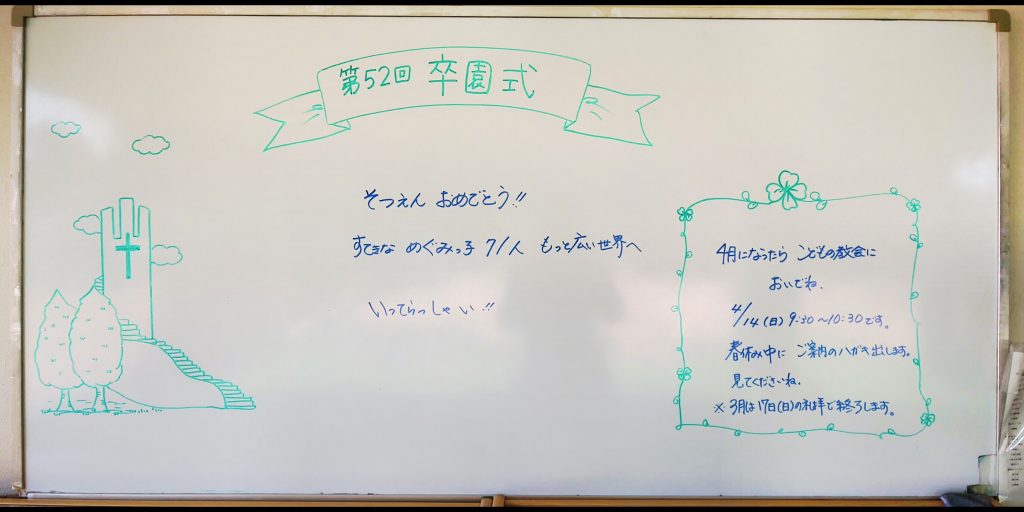 第52回 卒園式
そつえん おめでとう!!
すてきな めぐみっ子 71人 もっと広い世界へ
いってらっしゃい!!
4月になったら こどもの教会に
おいでね.
4/14(日) 9:30~10:30です。
春休み中に ご案内のハガキ出します。
見てくださいね.
※ 3月は17日(日)の礼拝で終ろします。